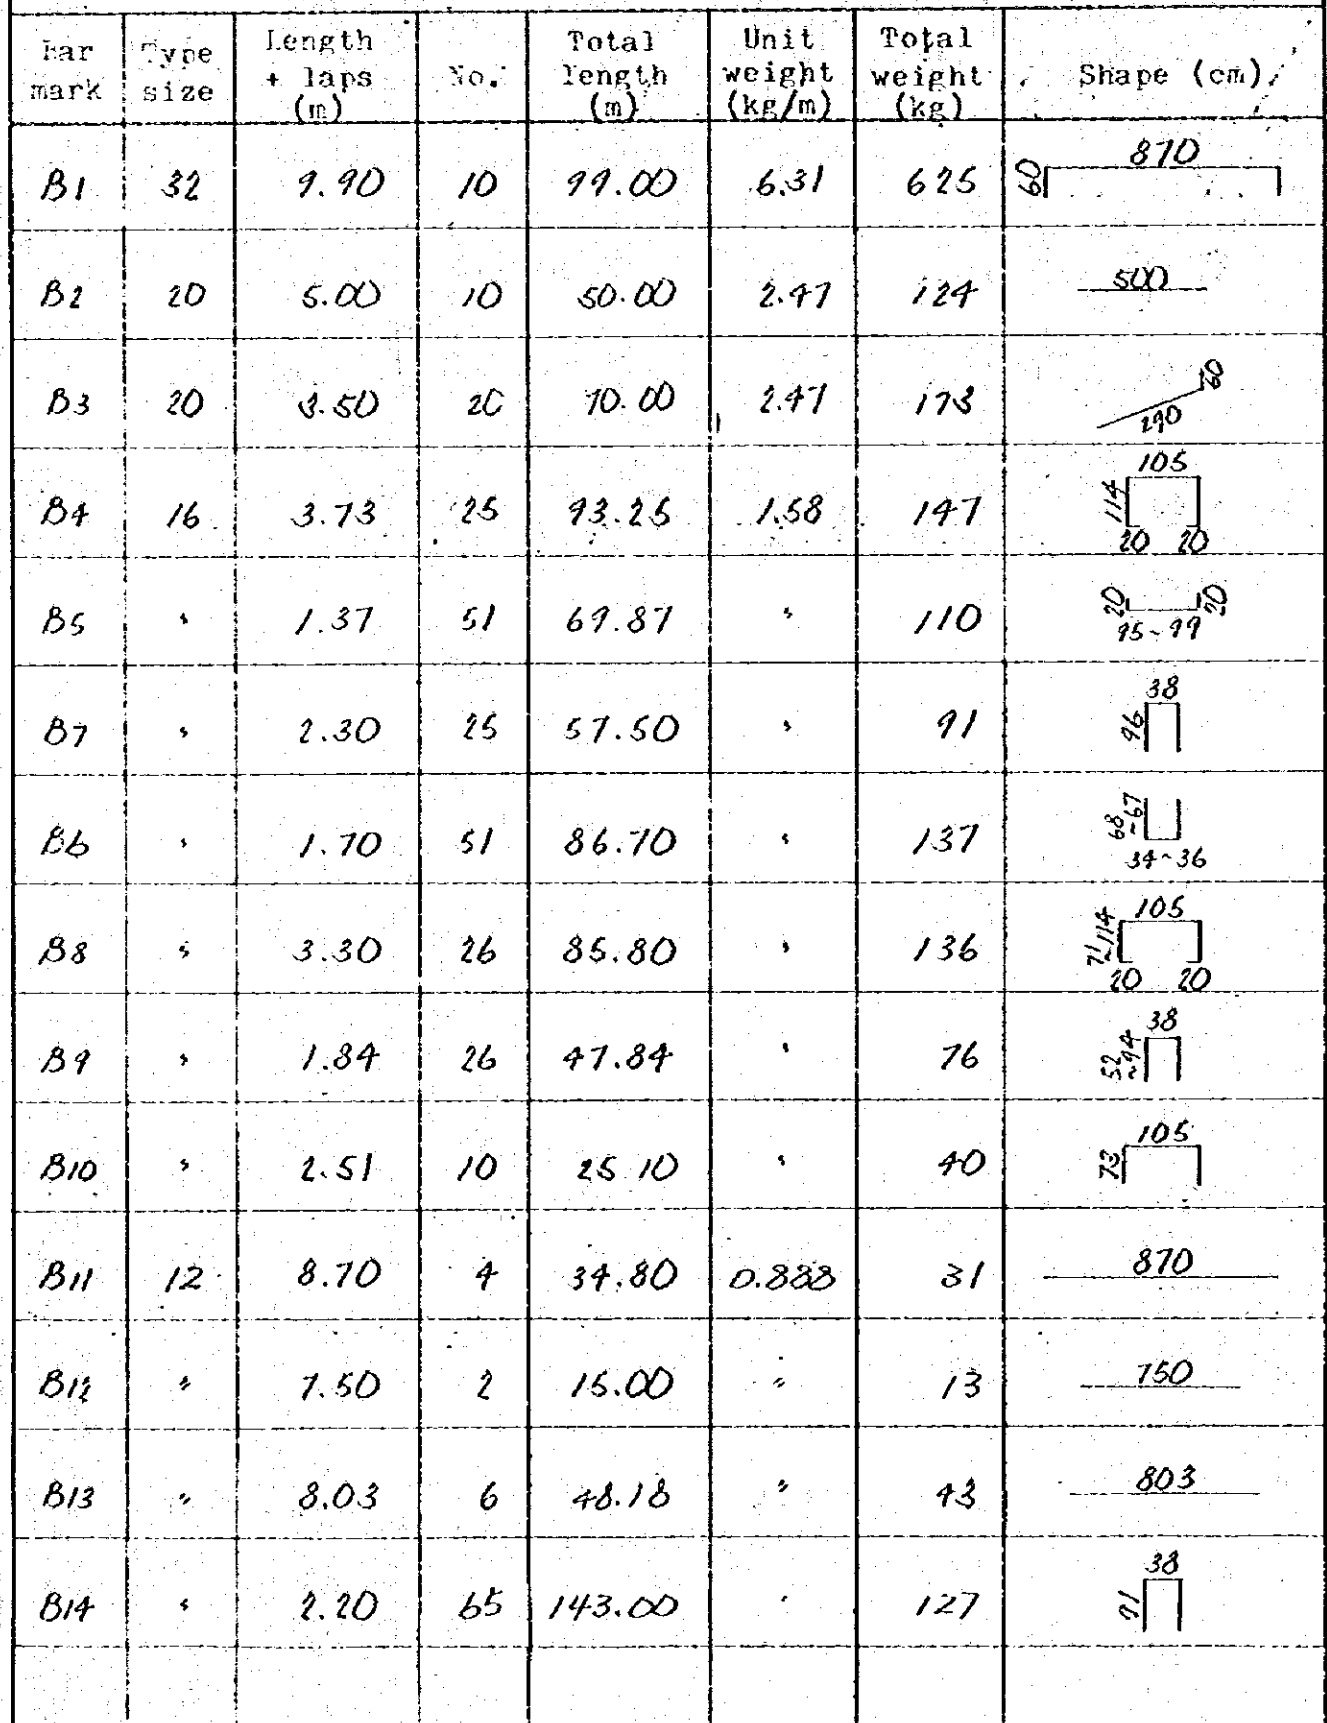 Bar mark Type size Length + laps (m) No. Total length (m) Unit weight (kg/m) Total weight (kg) Shape (cm)
B1 32 9.90 10 99.00 6.31 625 60 870
B2 20 5.00 10 50.00 2.47 124 500
B3 20 3.50 20 70.00 2.47 173 290 60
B4 16 3.73 25 93.25 1.58 147 105 114 20 20
B5 〃 1.37 51 69.87 〃 110 20 20 95~99
B7 〃 2.30 25 57.50 〃 91 38 96
B6 〃 1.70 51 86.70 〃 137 68~67 34~36
B8 〃 3.30 26 85.80 〃 136 105 71~114 20 20
B9 〃 1.84 26 47.84 〃 76 38 52~94
B10 〃 2.51 10 25.10 〃 40 105 73
B11 12 8.70 4 34.80 0.888 31 870
B12 〃 7.50 2 15.00 〃 13 750
B13 〃 8.03 6 48.18 〃 43 803
B14 〃 2.20 65 143.00 〃 127 38 91